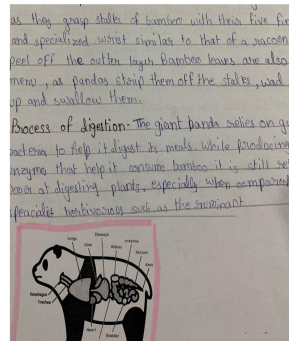 as they grasp stalks of bamboo with their five fin
and specialized wrist similar to that of a racoon
peel off the outter layer Bamboo leaves are also
menu, as pandas strip them off the stalks, wad
up and swallow them.
Process of digestion- The giant panda relies on gu
bacteria to help it digest its meals. While producing
enzyme that help it consume bamboo it is still rel
at digesting plants, especially when compared
speacialist herbivorous such as the ruminant
Stomach
Lungs
Liver
Kidney
Intestine
Rectum
Anus
Esophagus
Trachea
Heart
Bladder